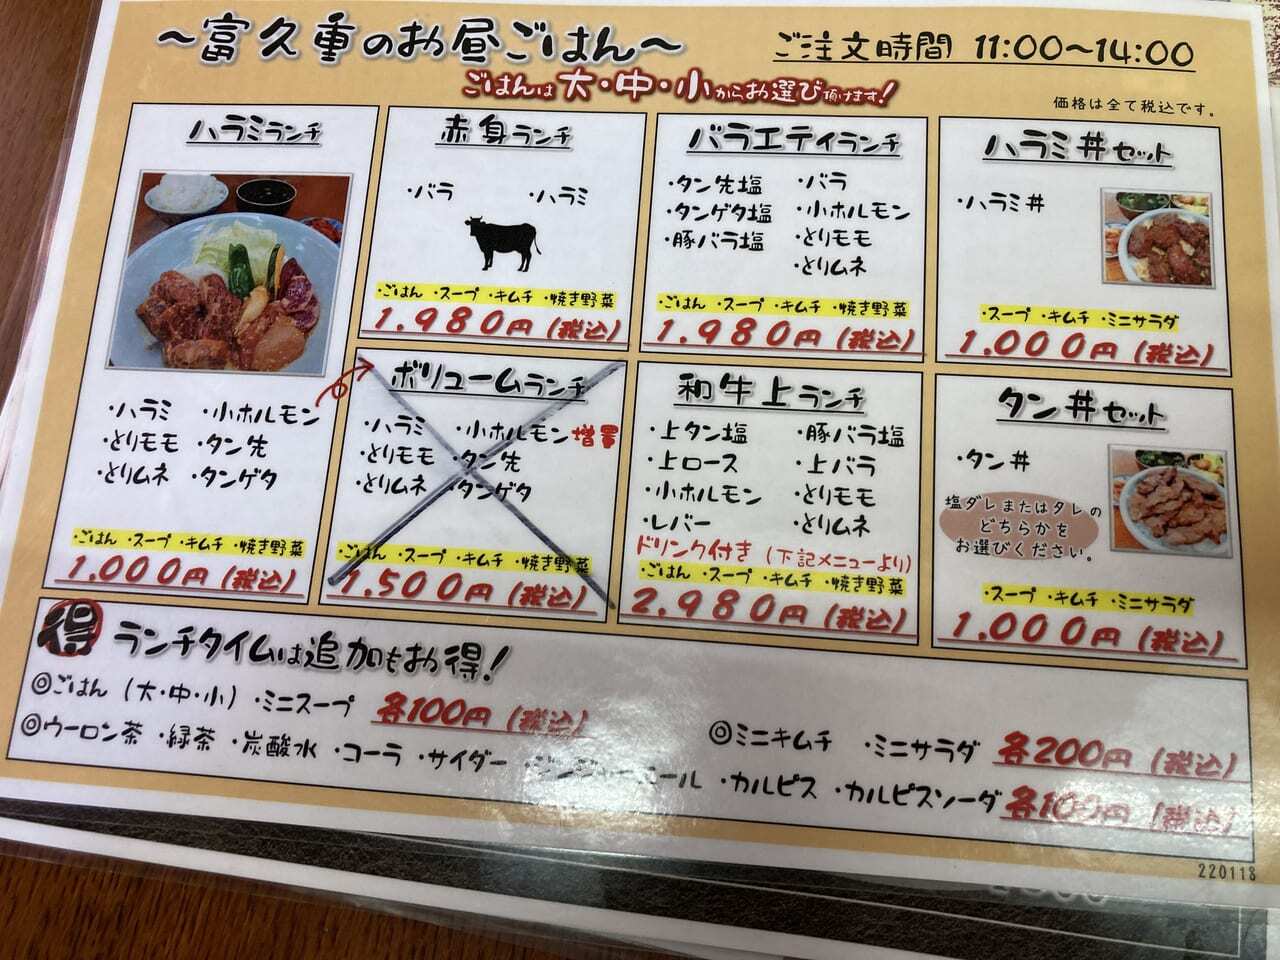 ～富久重のお昼ごはん～
ご注文時間 11:00～14:00
ごはんは大・中・小からお選び頂けます！
価格は全て税込です。
ハラミランチ
・ハラミ ・小ホルモン
・とりモモ ・タン先
・とりムネ ・タンゲタ
・ごはん ・スープ ・キムチ ・焼き野菜
1,000円（税込）
赤身ランチ
・バラ ・ハラミ
・ごはん ・スープ ・キムチ ・焼き野菜
1,980円（税込）
バラエティランチ
・タン先塩 ・バラ
・タンゲタ塩 ・小ホルモン
・豚バラ塩 ・とりモモ
・とりムネ
・ごはん ・スープ ・キムチ ・焼き野菜
1,980円（税込）
ハラミ丼セット
・ハラミ丼
・スープ ・キムチ ・ミニサラダ
1,000円（税込）
ボリュームランチ
・ハラミ ・小ホルモン増量
・とりモモ ・タン先
・とりムネ ・タンゲタ
・ごはん ・スープ ・キムチ ・焼き野菜
1,500円（税込）
和牛上ランチ
・上タン塩 ・豚バラ塩
・上ロース ・上バラ
・小ホルモン ・とりモモ
・レバー ・とりムネ
ドリンク付き（下記メニューより）
・ごはん ・スープ ・キムチ ・焼き野菜
2,980円（税込）
タン丼セット
・タン丼
塩ダレまたはタレの
どちらかを
お選びください。
・スープ ・キムチ ・ミニサラダ
1,000円（税込）
得 ランチタイムは追加もお得！
◎ごはん（大・中・小）・ミニスープ 各100円（税込）
◎ミニキムチ ・ミニサラダ 各200円（税込）
◎ウーロン茶 ・緑茶 ・炭酸水 ・コーラ ・サイダー ・ジンジャーエール ・カルピス ・カルピスソーダ 各100円（税込）
220118